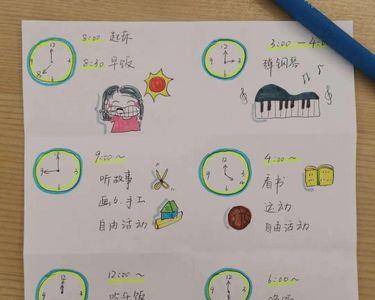 8:00 起床
8:30 早饭
3:00 — 4:00
弹钢琴
9:00～
听故事
画画、手工
自由活动
4:00～
看书
运动
自由活动
12:00～
吃午饭
6:00～
晚饭